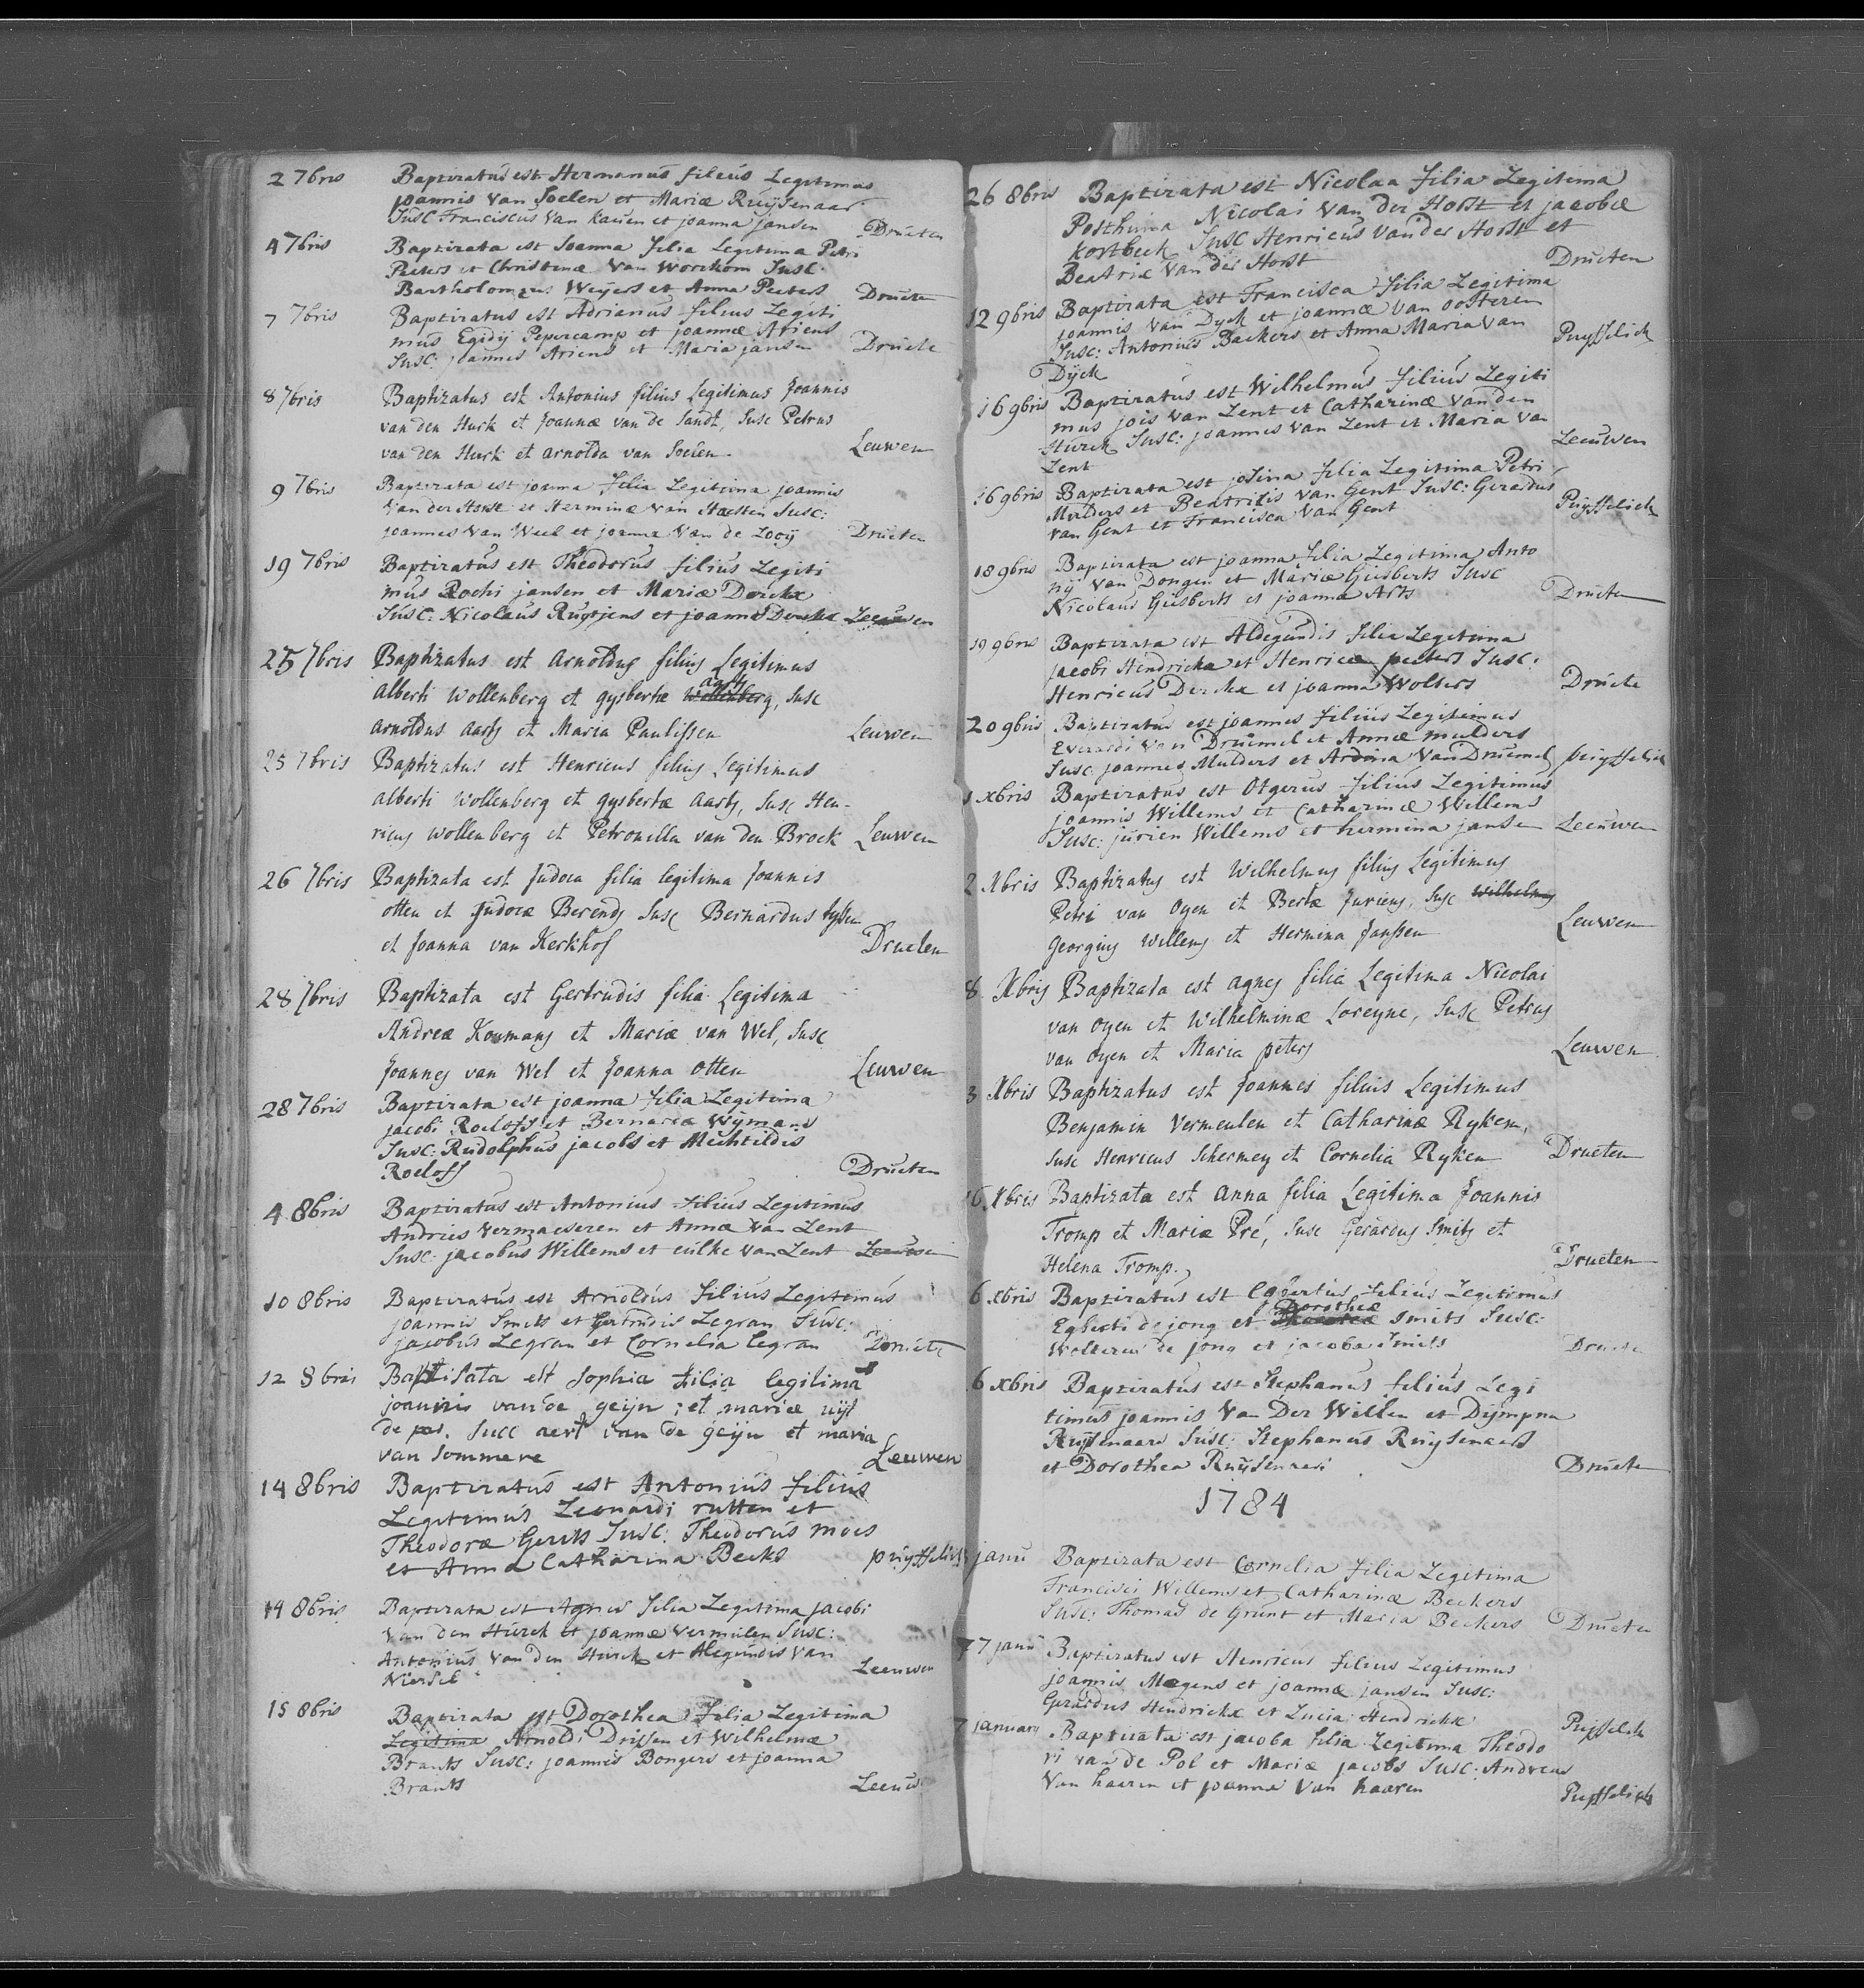 2 7bris Baptizatus est Hermanus filius Legitimus
joannis Van Soelen et Mariæ Ruijsenaar
Susc Franciscus Van Kauen et joanna jansen Druten
4 7bris Baptizata est Joanna filia Legitima Petri
Peeters et Christinæ Van Worckom Susc.
Bartholomæus Weijers et Anna Peeters Druten
7 7bris Baptizatus est Adrianus filius Legiti
mus Egidij Pepercamp et joannæ Ariens
Susc: joannes Ariens et Maria jansen Drute
8 7bris Baptizatus est Antonius filius Legitimus Joannis
van den Hurk et Joannæ van de Sandt, Susc Petrus
van den Hurk et arnolda van Soelen Leuwen
9 7bris Baptizata est joanna filia Legitima joannis
Van der Horst et Herminæ Van Haesten Susc:
joannes Van Weel et joanna Van de Looij Druten
19 7bris Baptizatus est Theodorus filius Legiti
mus Rochi jansen et Mariæ Derckx
Susc: Nicolaus Rutjens et joanna Derckx Leeuwen
25 7bris Baptizatus est arnoldus filius Legitimus
aarts
alberti Wollenberg et gysbertæ Wollenberg, Susc
arnoldus aarts et Maria Paulissen Leuwen
25 7bris Baptizatus est Henricus filius Legitimus
alberti Wollenberg et gysbertæ aarts, Susc Hen-
ricus Wollenberg et Petronilla van den Broek Leuwen
26 7bris Baptizata est Judoca filia legitima Joannis
otten et Judocæ Berends Susc Bernardus
et Joanna van Kerkhof Drueten
28 7bris Baptizata est Gertrudis filia Legitima
Andreæ Koumans et Mariæ van Wel, Susc
Joannes van Wel et Joanna otten Leuwen
28 7bris Baptizata est joanna filia Legitima
jacobi Roeloffs et Bernardæ Wijmans
Susc: Rudolphus jacobs et Mechtildis
Roeloff Drueten
4 8bris Baptizatus est Antonius filius Legitimus
Andries Vermaeseren et Annæ Van Lent
Susc. jacobus Willems et eilke van Lent Leeuwen
10 8bris Baptizatus est Arnoldus filius Legitimus
joannis Smits et Gertrudis Legran Susc:
jacobus Legran et Cornelia legran Drute
12 8bris Baptisata est Sophia filia legitima
joannis van de geijn, et mariæ uijt
de pas. Susc aert van de geijn et maria
van Sommere Leeuwen
14 8bris Baptizatus est Antonius filius
Legitimus Leonardi rutten et
Theodoræ Gerits Susc: Theodorus moes
et Anna Catharina Becks puijfflick
14 8bris Baptizata est Agnes filia Legitima jacobi
Van den Hurck et joannæ Vermeulen Susc:
Antonius Van den Hurck et Alegundis Van
Niersel Leeuwen
15 8bris Baptizata est Dorothea filia Legitima
Legitima Arnoldi Driesen et Wilhelmæ
Brants Susc: joannis Bongers et joanna
Brants Leeuw
26 8bris Baptizata est Nicolaa filia Legitima
Posthuma Nicolai Van der Horst et jacobæ
Kostbeek Susc Henricus Van der Horst et
Beatrix Van der Horst Drueten
12 9bris Baptizata est Francisca filia Legitima
joannis Van Dyck et joannæ Van oosteren
Susc: Antonius Backers et Anna Maria Van
Dijck Puyfflick
16 9bris Baptizatus est Wilhelmus filius Legiti
mus jois Van Lent et Catharinæ Van den
Hurck Susc: joannes Van Lent et Maria Van
Lent Leeuwen
16 9bris Baptizata est josina filia Legitima Petri
Mulders et Beatricis Van Gent Susc: Gerardus
Van Gent et Francisca Van Gent Puyfflick
18 9bris Baptizata est joanna filia Legitima Anto
nij Van Dongen et Mariæ Giesberts Susc
Nicolaus Giesberts et joanna Arts Druten
19 9bris Baptizata est Aldegundis filia Legitima
jacobi Hendrickx et Henricæ peeters Susc:
Henricus Derckx et joanna Wolters Drute
20 9bris Baptizatus est joannes filius Legitimus
Everardi Van Druemel et Annæ mulders
Susc joannes Mulders et Ardina Van Druemel puyffelick
1 xbris Baptizatus est Otgerus filius Legitimus
joannis Willems et Catharinæ Willems
Susc: jurien Willems et hermina jansen Leeuwen
2 Xbris Baptizatus est Wilhelmus filius Legitimus
Petri van Oyen et Bertæ Juriens, Susc Wilhelmus
georgius Willems et Hermina Janssen Leuwen
8 Xbris Baptizata est agnes filia Legitima Nicolai
van oyen et Wilhelminæ Loreyne, Susc Petrus
van oyen et Maria peters Leuwen
3 Xbris Baptizatus est Joannes filius Legitimus
Benjamin Vermeulen et Catharinæ Ryken,
Susc Henricus Schermey et Cornelia Ryken Drueten
16 Xbris Baptizata est anna filia Legitima Joannis
Tromp et Mariæ Pré, Susc Gerardus Smits et
Helena Tromp. Drueten
6 xbris Baptizatus est Egbertus filius Legitimus
Dorotheæ
Egberti de jong et smits Susc:
Wolterus de jong et jacoba Smits Drute
6 xbris Baptizatus est Stephanus filius Legi
timus joannis Van Der Willen et Dijmpna
Ruijsenaars Susc: Stephanus Ruysenaars
et Dorothea Ruijsenaars Drute
1784
janu Baptizata est Cornelia filia Legitima
Francisci Willems et Catharinæ Beckers
Susc: Thomas de Grunt et Maria Beckers Drueten
7 janu Baptizatus est Henricus filius Legitimus
joannis Megens et joannæ jansen Susc:
Gerardus Hendrickx et Lucia Hendrickx Puyfflick
7 january Baptizata est jacoba filia Legitima Theodo
ri van de Pol et Mariæ jacobs Susc. Andreas
Van haeren et joanna Van haaren Puyfflick